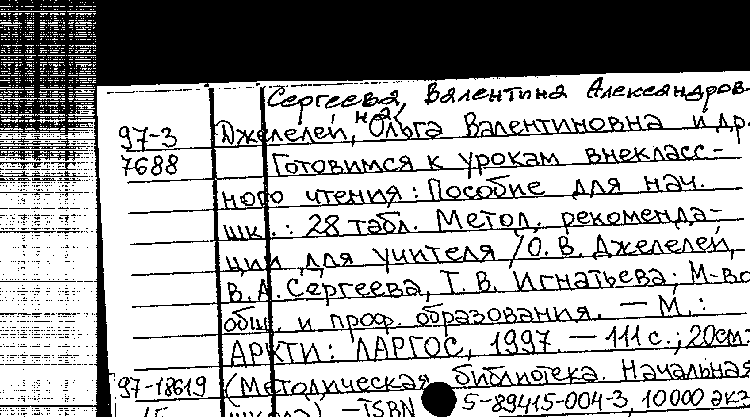 Сергеева, Валентина Александров-
на,
97-3 Джелелей, Ольга Валентиновна и др.
7688 Готовимся к урокам внекласс-
ного чтения: Пособие для нач.
шк.: 28 табл. Метод. рекоменда-
ции для учителя / О. В. Джелелей,
В. А. Сергеева, Т. В. Игнатьева; М-во
общ. и проф. образования. — М.:
АРКТИ: ЛАРГОС, 1997. — 111 с.; 20см.
97-18619 (Методическая библиотека. Начальная
— ISBN 5-89415-004-3, 10000 экз